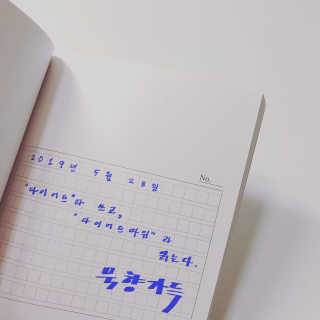 No.
2019년 5월 28일
"다이어트"라 쓰고,
"다이어트마임" 라
읽는다.
묵향가득